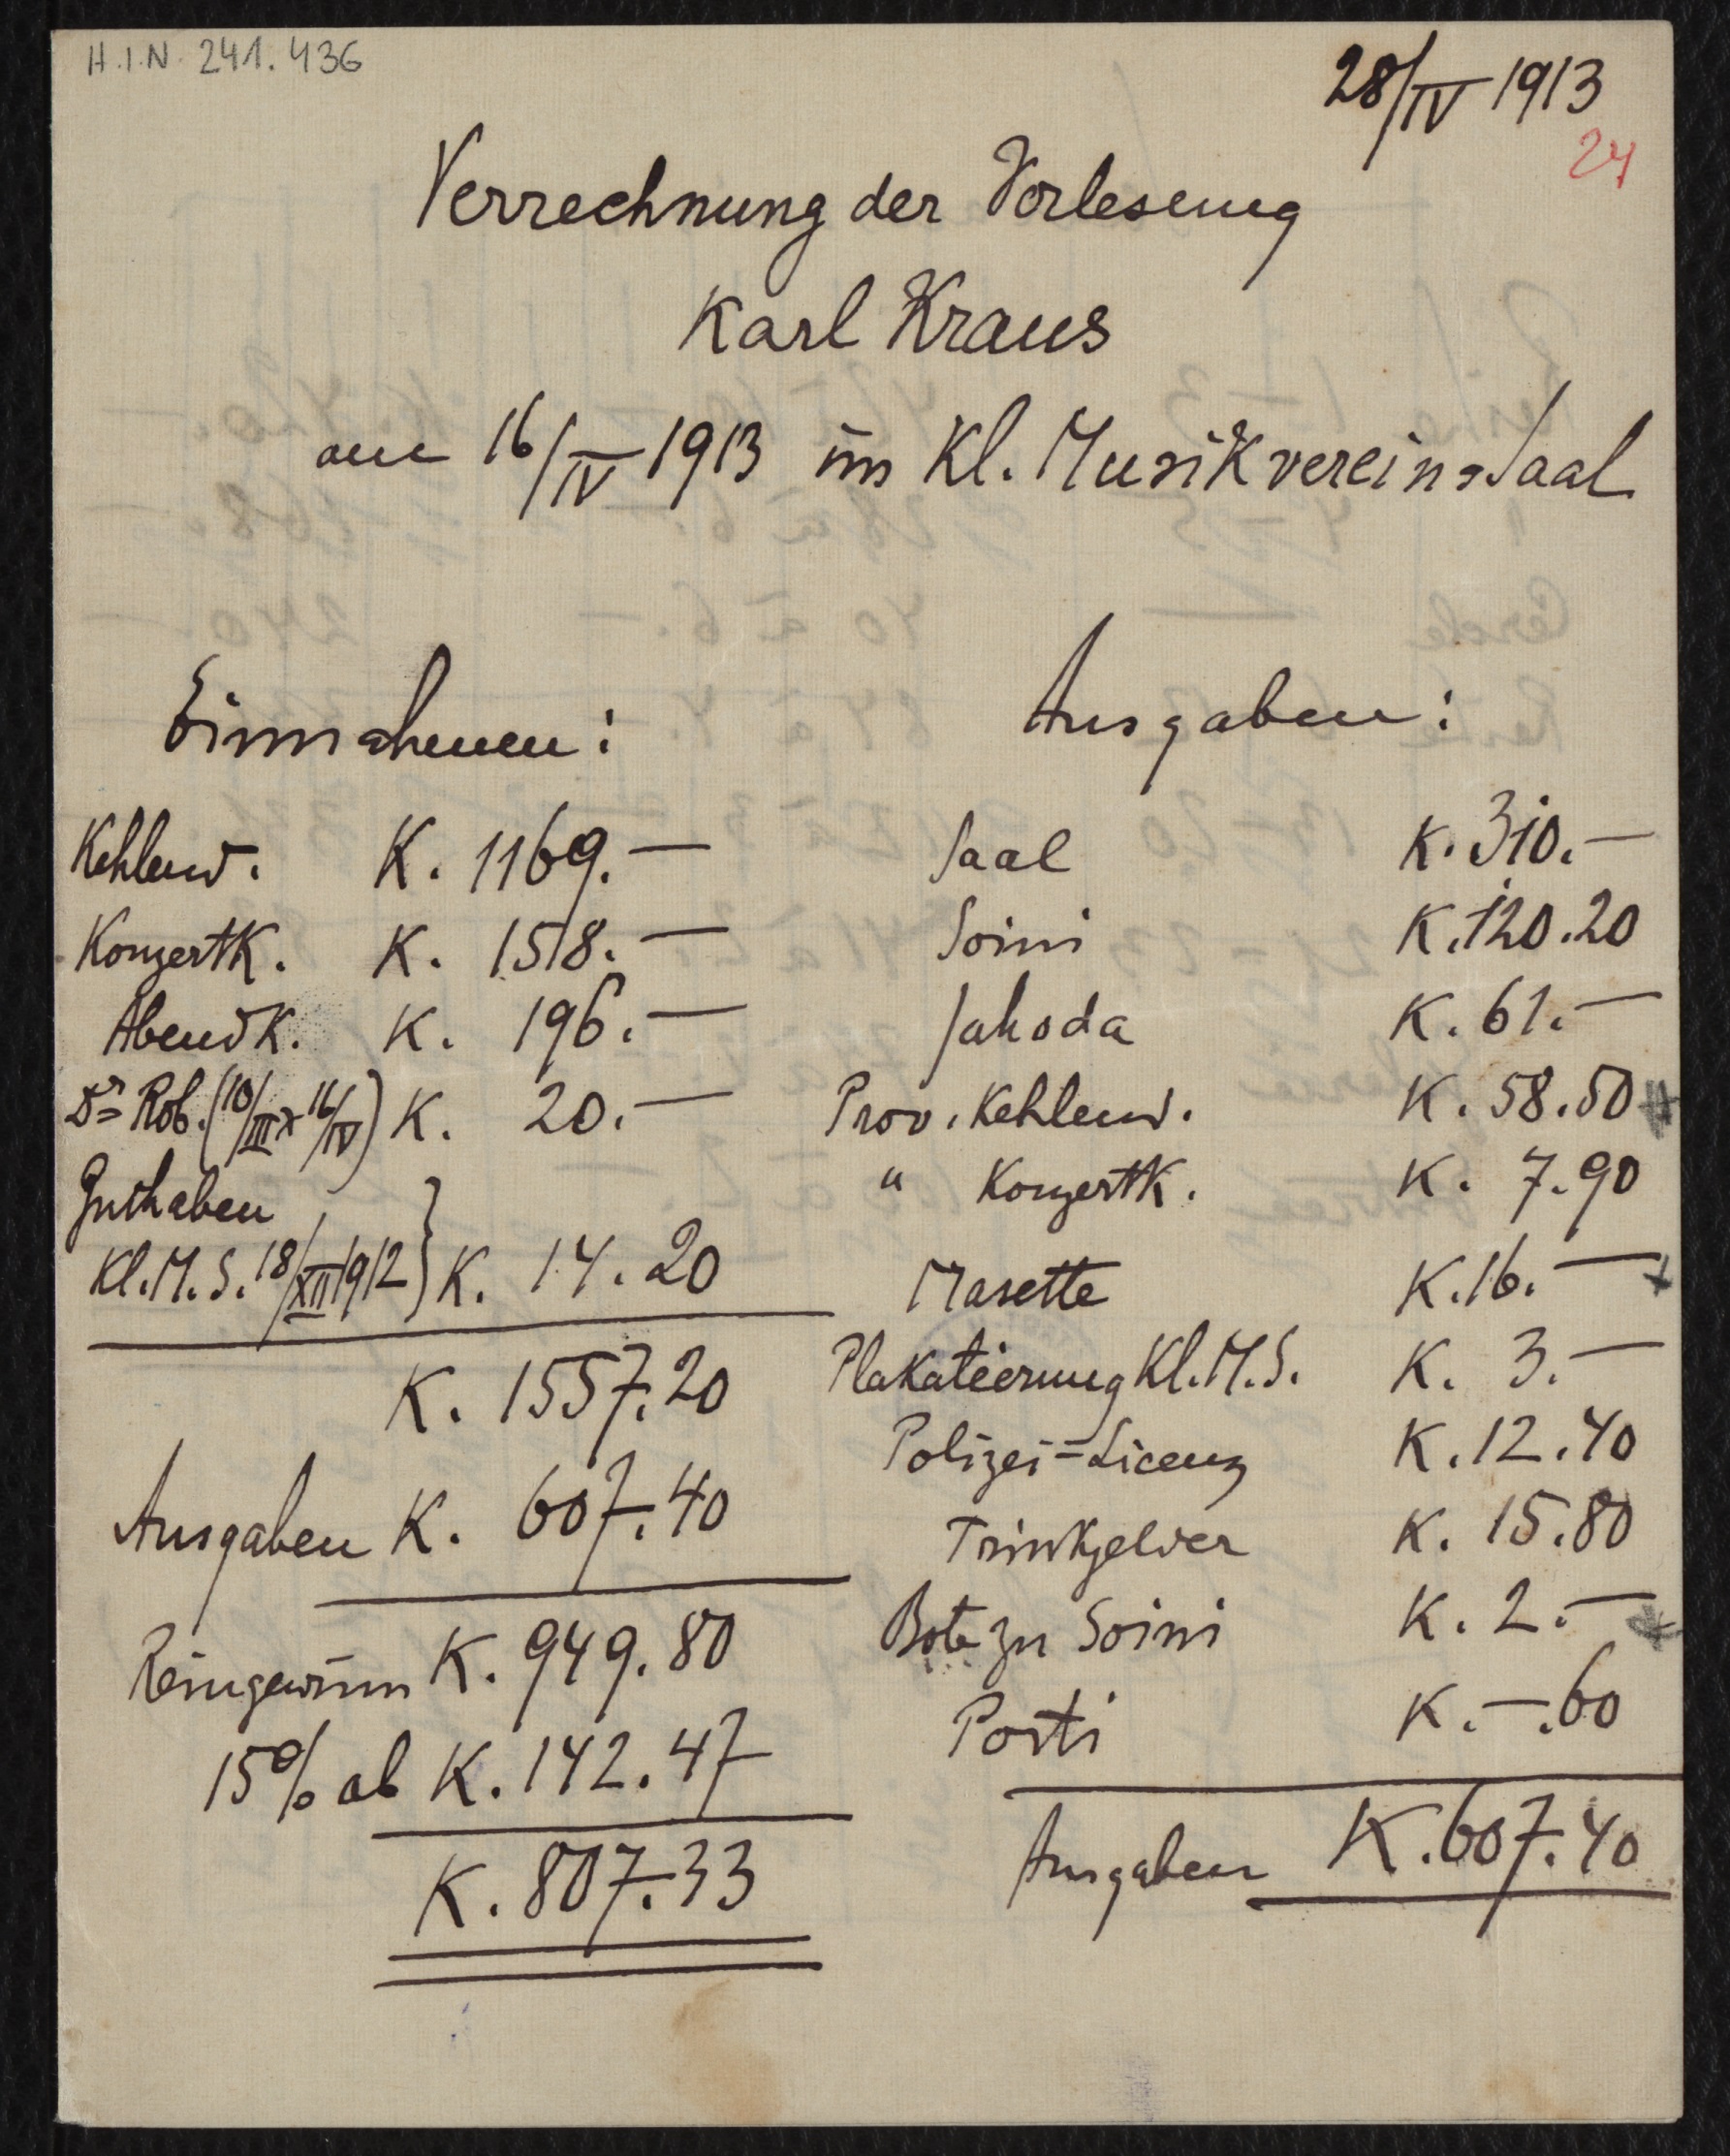 H.I.N. 241.436
28/IV 1913
24
Verrechnung der Vorlesung
Karl Kraus
am 16/IV 1913 im Kl. Musikvereinssaal
Einnahmen:
Kehlend. K. 1169.—
Konzertk. K. 158.—
Abendk. K. 196.—
Dr Rob. (10/III x 16/IV) K. 20.—
Guthaben
Kl. M. S. 18/XII 1912} K. 14.20
K. 1557.20
Ausgaben K. 607.40
Reingewinn K. 949.80
15% ab K. 142.47
K. 807.33
Ausgaben:
Saal K. 310.—
Soini K. 120.20
Jahoda K. 61.—
Prov. Kehlend. K. 58.50
" Konzertk. K. 7.90
Masette K. 16.—
Plakatierung Kl. M. S. K. 3.—
Polizei=Licenz K. 12.40
Trinkgelder K. 15.80
Bote zu Soini K. 2.—
Porti K. —.60
Ausgaben K. 607.40